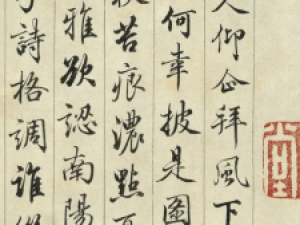 仰企拜風下
何幸披是圖
苔痕濃點
雅欲認南陽
詩格調誰